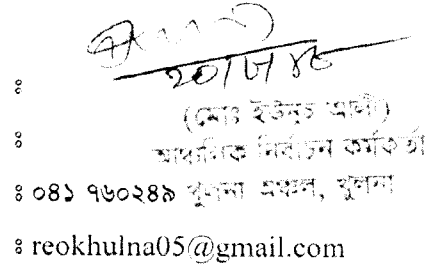 ঃ
(মোঃ ইউনুচ আলী)
ঃ আঞ্চলিক নির্বাচন কর্মকর্তা
ঃ ০৪১ ৭৬০২৪৯ খুলনা অঞ্চল, খুলনা
ঃ reokhulna05@gmail.com